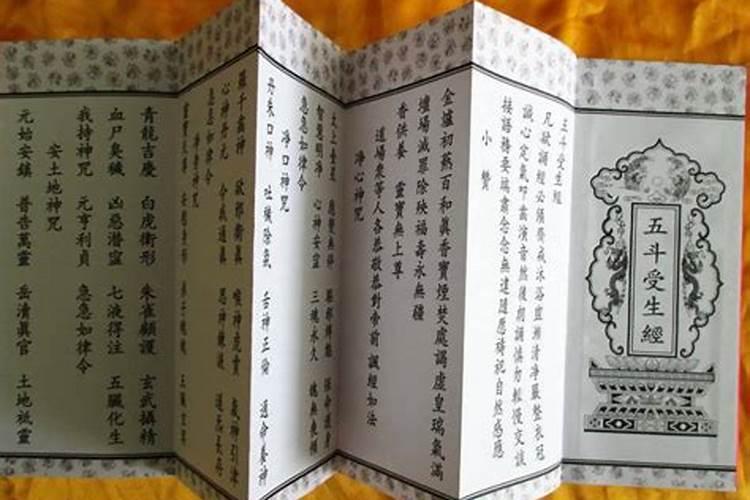 五斗受生經
五斗受生經
凡欲誦經必須齋戒沐浴盥漱清淨嚴整衣冠
誠心定氣叩齒演音然後朗誦慎勿輕慢交談
接語務要端肅念念無違隨應禱祀自然感應
小贊
金爐初爇百和眞香寶煙焚處謁虛皇瑞氣滿
壇場滅罪除殃福壽永無疆
香供養 靈寶無上尊
道場衆等人各恭敬恭對帝前 誦經如法
淨心神咒
太上台星 應變無停 驅邪縛魅 保命護身
智慧明淨 心神安寍 三魂永久 魄無喪傾
急急如律令
淨口神咒
丹朱口神 吐穢除氛 舌神正倫 通命養神
羅千齒神 卻邪衛眞 喉神虎賁 氣神引津
心神丹元 令我通眞 思神鍊液 道炁長存
急急如律令
淨身神咒
靈寶天尊 安慰身形 弟子魂魄 五臟玄冥
青龍吉慶 白虎衛形 朱雀顧護 玄武攝精
血尸臭穢 凶惡潛寍 七液得注 五臟化生
我持神咒 元亨利貞 急急如律令
安土地神咒
元始安鎮 普告萬靈 岳瀆眞官 土地祇靈